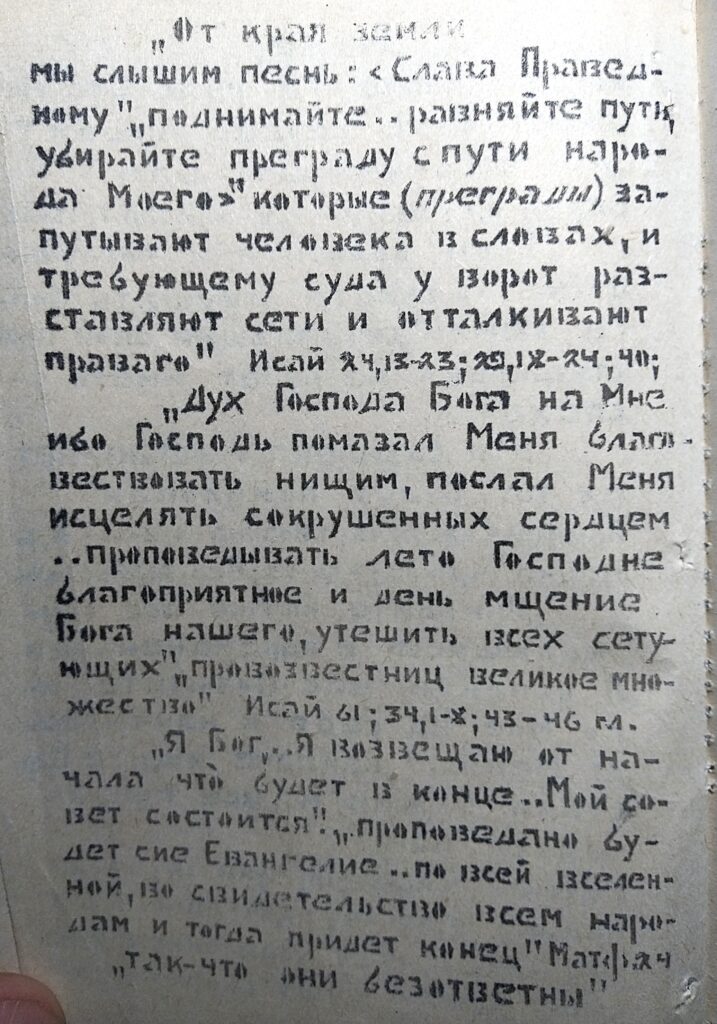 „От края земли
мы слышим песнь: <Слава Правед-
ному",„поднимайте..равняйте путь,
убирайте преграду с пути наро-
да Моего>" которые (преграды) за-
путывают человека в словах, и
требующему суда у ворот раз-
ставляют сети и отталкивают
праваго" Исай 24,13-23; 29,18-24; 40;
„Дух Господа Бога на Мне
ибо Господь помазал Меня благо-
вествовать нищим, послал Меня
исцелять сокрушенных сердцем
..проповедывать лето Господне
благоприятное и день мщение
Бога нашего, утешить всех сету-
ющих",„провозвестниц великое мно-
жество" Исай 61; 34,1-8; 43-46 гл.
„Я Бог,..Я возвещаю от на-
чала что будет в конце..Мой со-
вет состоится"!„проповедано бу-
дет сие Евангелие..по всей вселен-
ной, во свидетельство всем наро-
дам и тогда придет конец" Матф 24
„так-что они безответны"